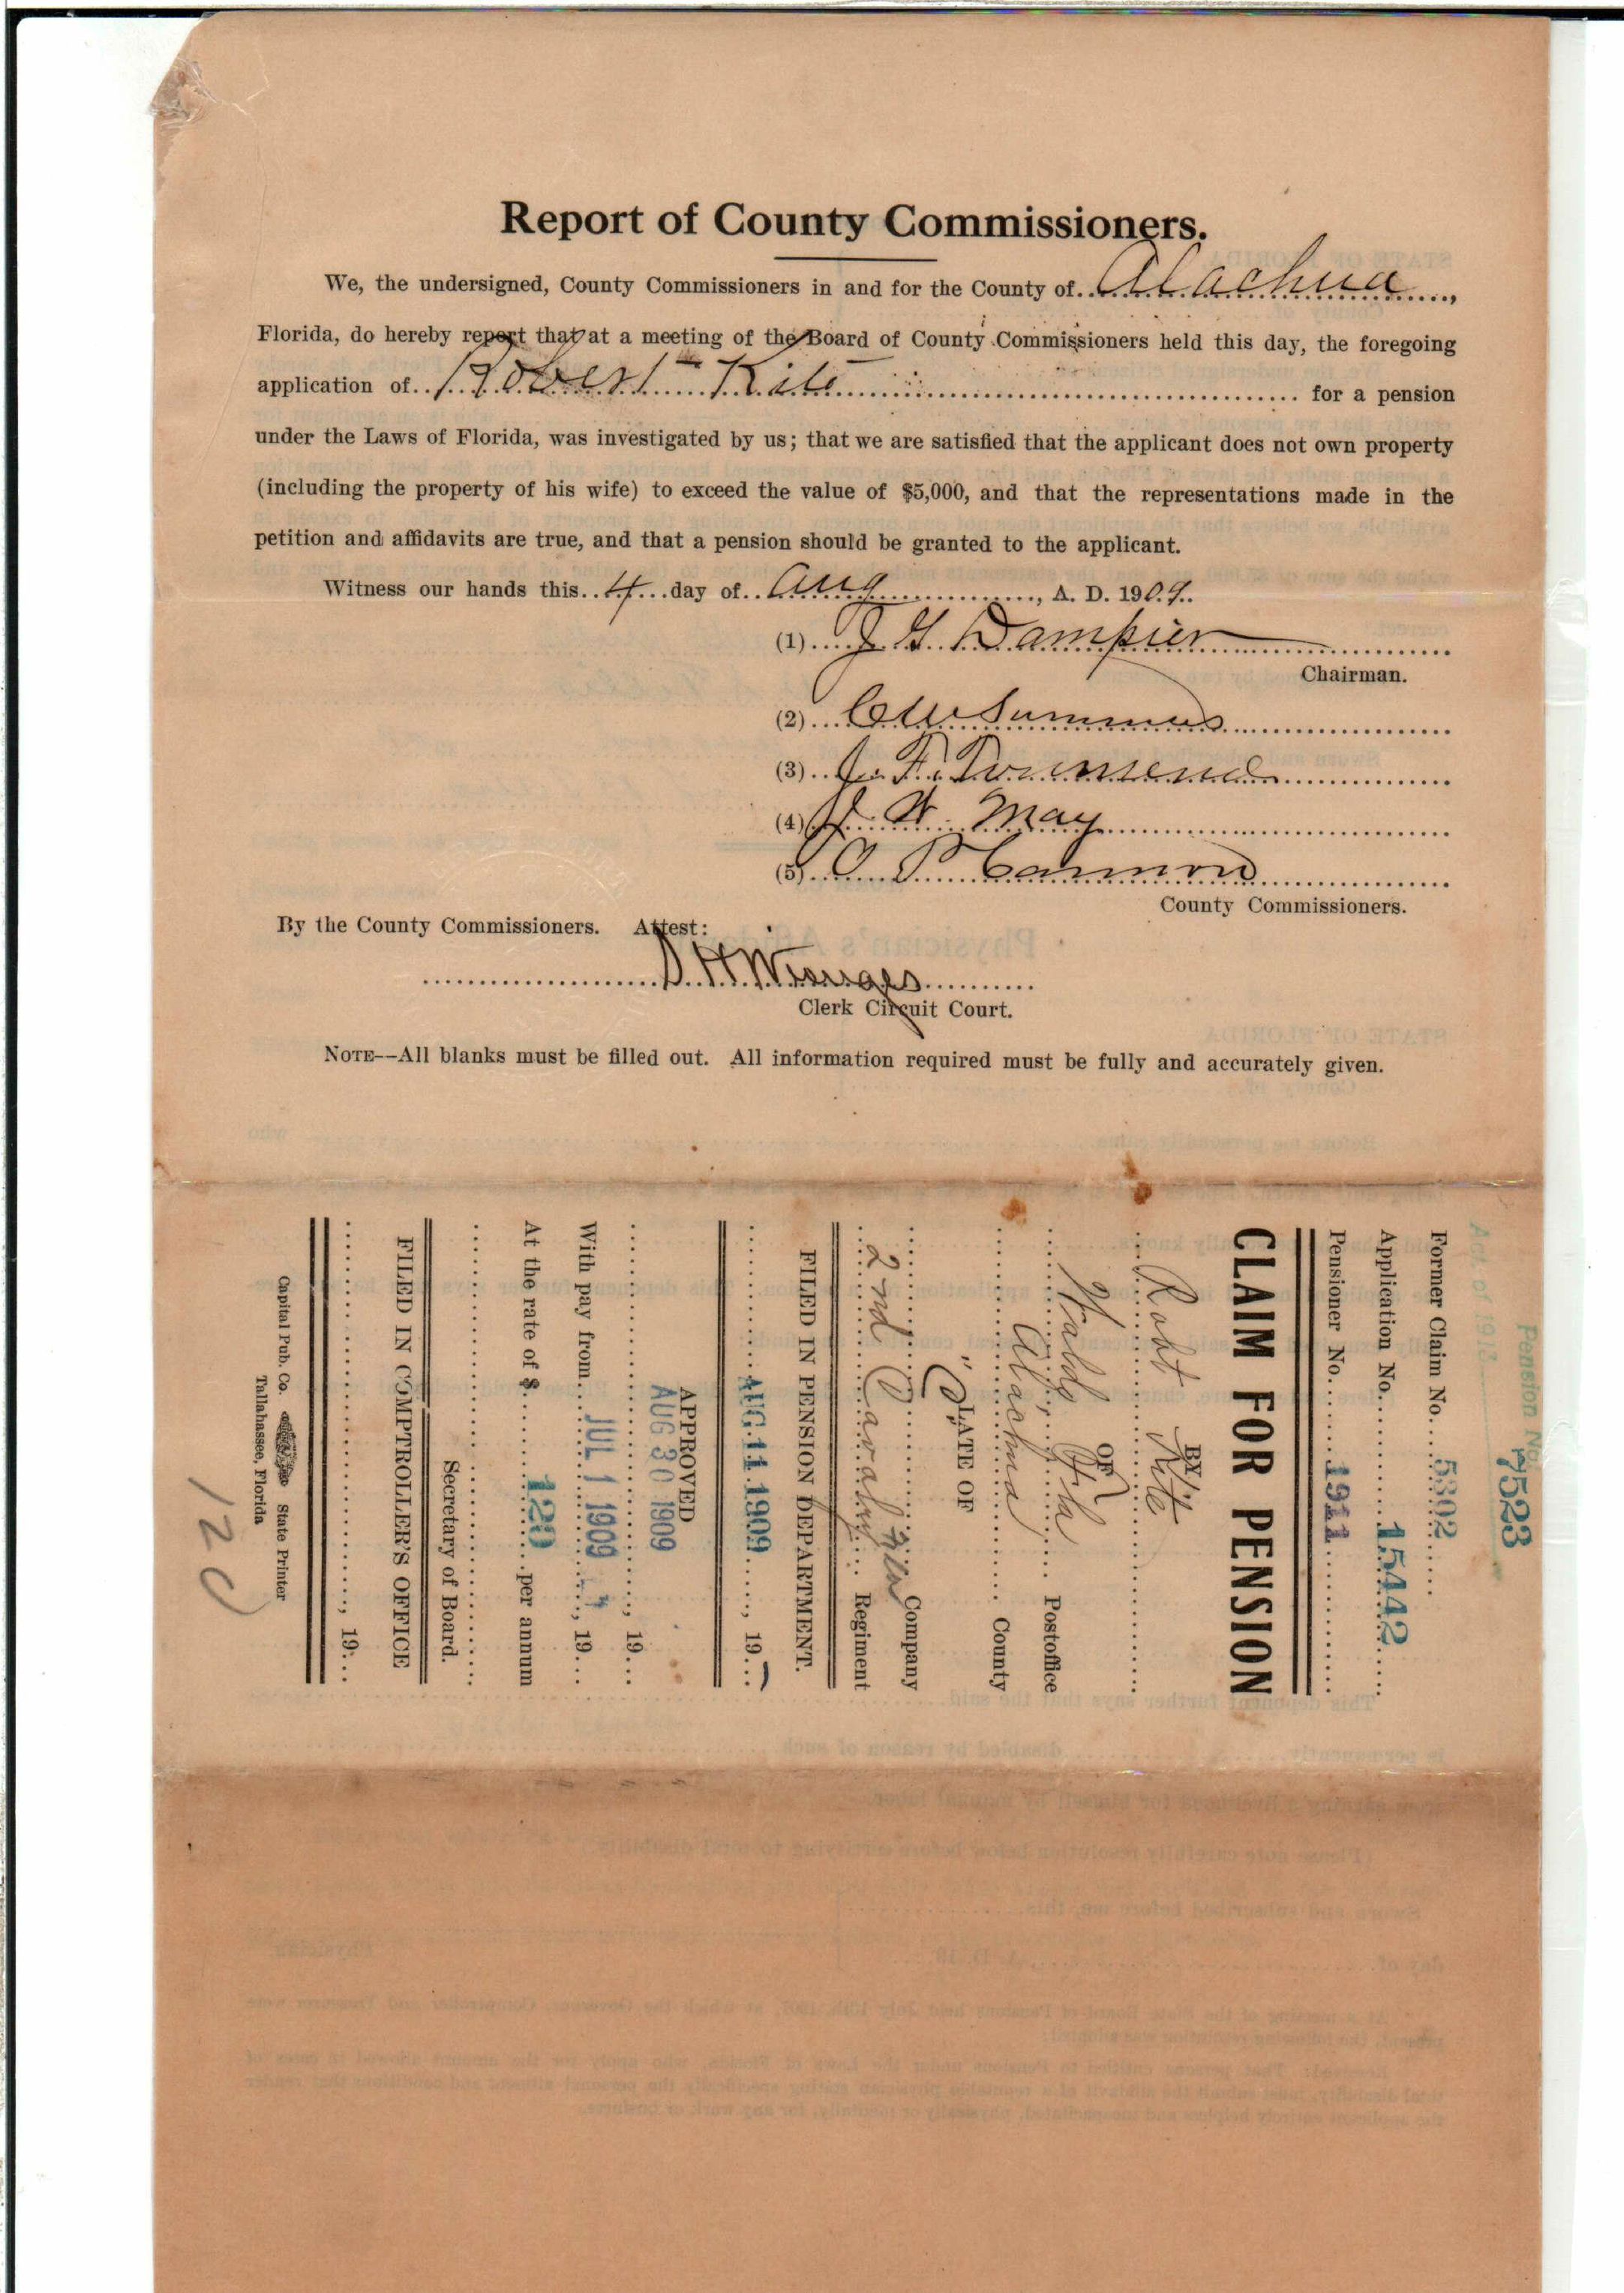 Report of County Commissioners.
We, the undersigned, County Commissioners in and for the County of Alachua,
Florida, do hereby report that at a meeting of the Board of County Commissioners held this day, the foregoing
application of Robert Kite for a pension
under the Laws of Florida, was investigated by us; that we are satisfied that the applicant does not own property
(including the property of his wife) to exceed the value of $5,000, and that the representations made in the
petition and affidavits are true, and that a pension should be granted to the applicant.
Witness our hands this 4 day of Aug, A. D. 1909.
(1) J G Dampier
Chairman.
(2) C W Summers
(3) J. F. Townsend
(4) J W May
(5) O P Cannon
County Commissioners.
By the County Commissioners. Attest:
S. H. Wienges
Clerk Circuit Court.
NOTE--All blanks must be filled out. All information required must be fully and accurately given.
Pension No.
7523
Act of 1913
Former Claim No. 5302
Application No. 15442
Pensioner No. 1911
CLAIM FOR PENSION
BY
Robt Kite
OF
Waldo, Fla Postoffice
Alachua County
LATE OF
"C" Company
2nd Cavalry Regiment
FILED IN PENSION DEPARTMENT.
AUG 11 1909, 19
APPROVED
AUG 30 1909
, 19
With pay from JUL 1 1909, 19
At the rate of $ 120 per annum
Secretary of Board.
FILED IN COMPTROLLER'S OFFICE
, 19
Capital Pub. Co. State Printer
Tallahassee, Florida
120